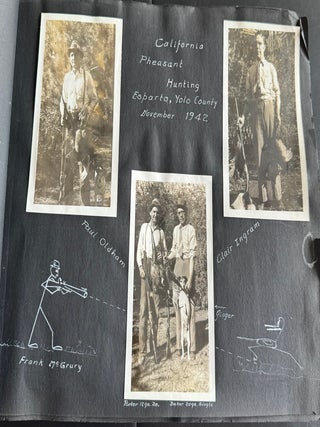 California
Pheasant
Hunting
Esparto, Yolo County
November 1942
Paul Oldham
Clair Ingram
Ginger
Frank McGrury
Parker 12 ga. Do. Baker 20 ga. Single